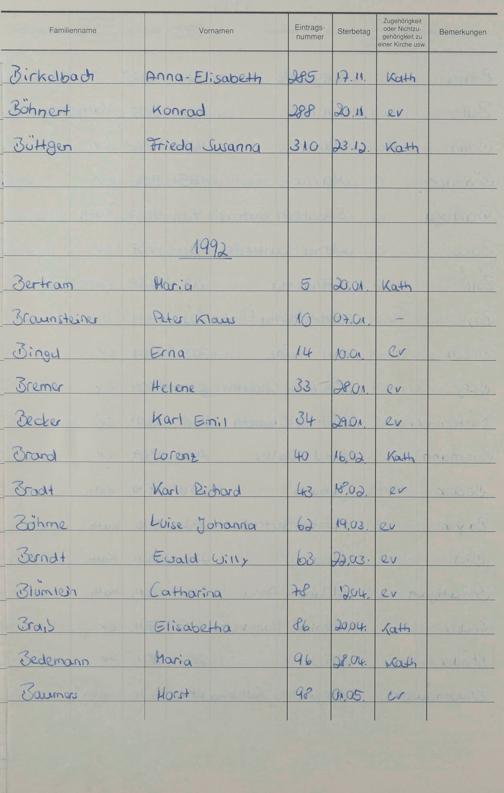 Familienname Vornamen Eintrags- nummer Sterbetag Zugehörigkeit oder Nichtzu- gehörigkeit zu einer Kirche usw. Bemerkungen
Birkelbach Anna-Elisabeth 285 17.11. Kath
Böhnert Konrad 288 20.11. ev
Büttgen Frieda Susanna 310 23.12. Kath
1992
Bertram Maria 5 20.01. Kath
Braunsteiner Peter Klaus 10 07.01. -
Bingel Erna 14 10.01. ev
Bremer Helene 33 28.01. ev
Becker Karl Emil 34 29.01. ev
Brand Lorenz 40 16.02. Kath
Bradt Karl Richard 43 18.02. ev
Böhme Luise Johanna 62 19.03. ev
Berndt Ewald Willy 63 22.03. ev
Blümlein Catharina 78 12.04. ev
Elisabetha 86 20.04. Kath
Bedemann Maria 96 28.04. Kath
Baumers Horst 98 01.05. ev